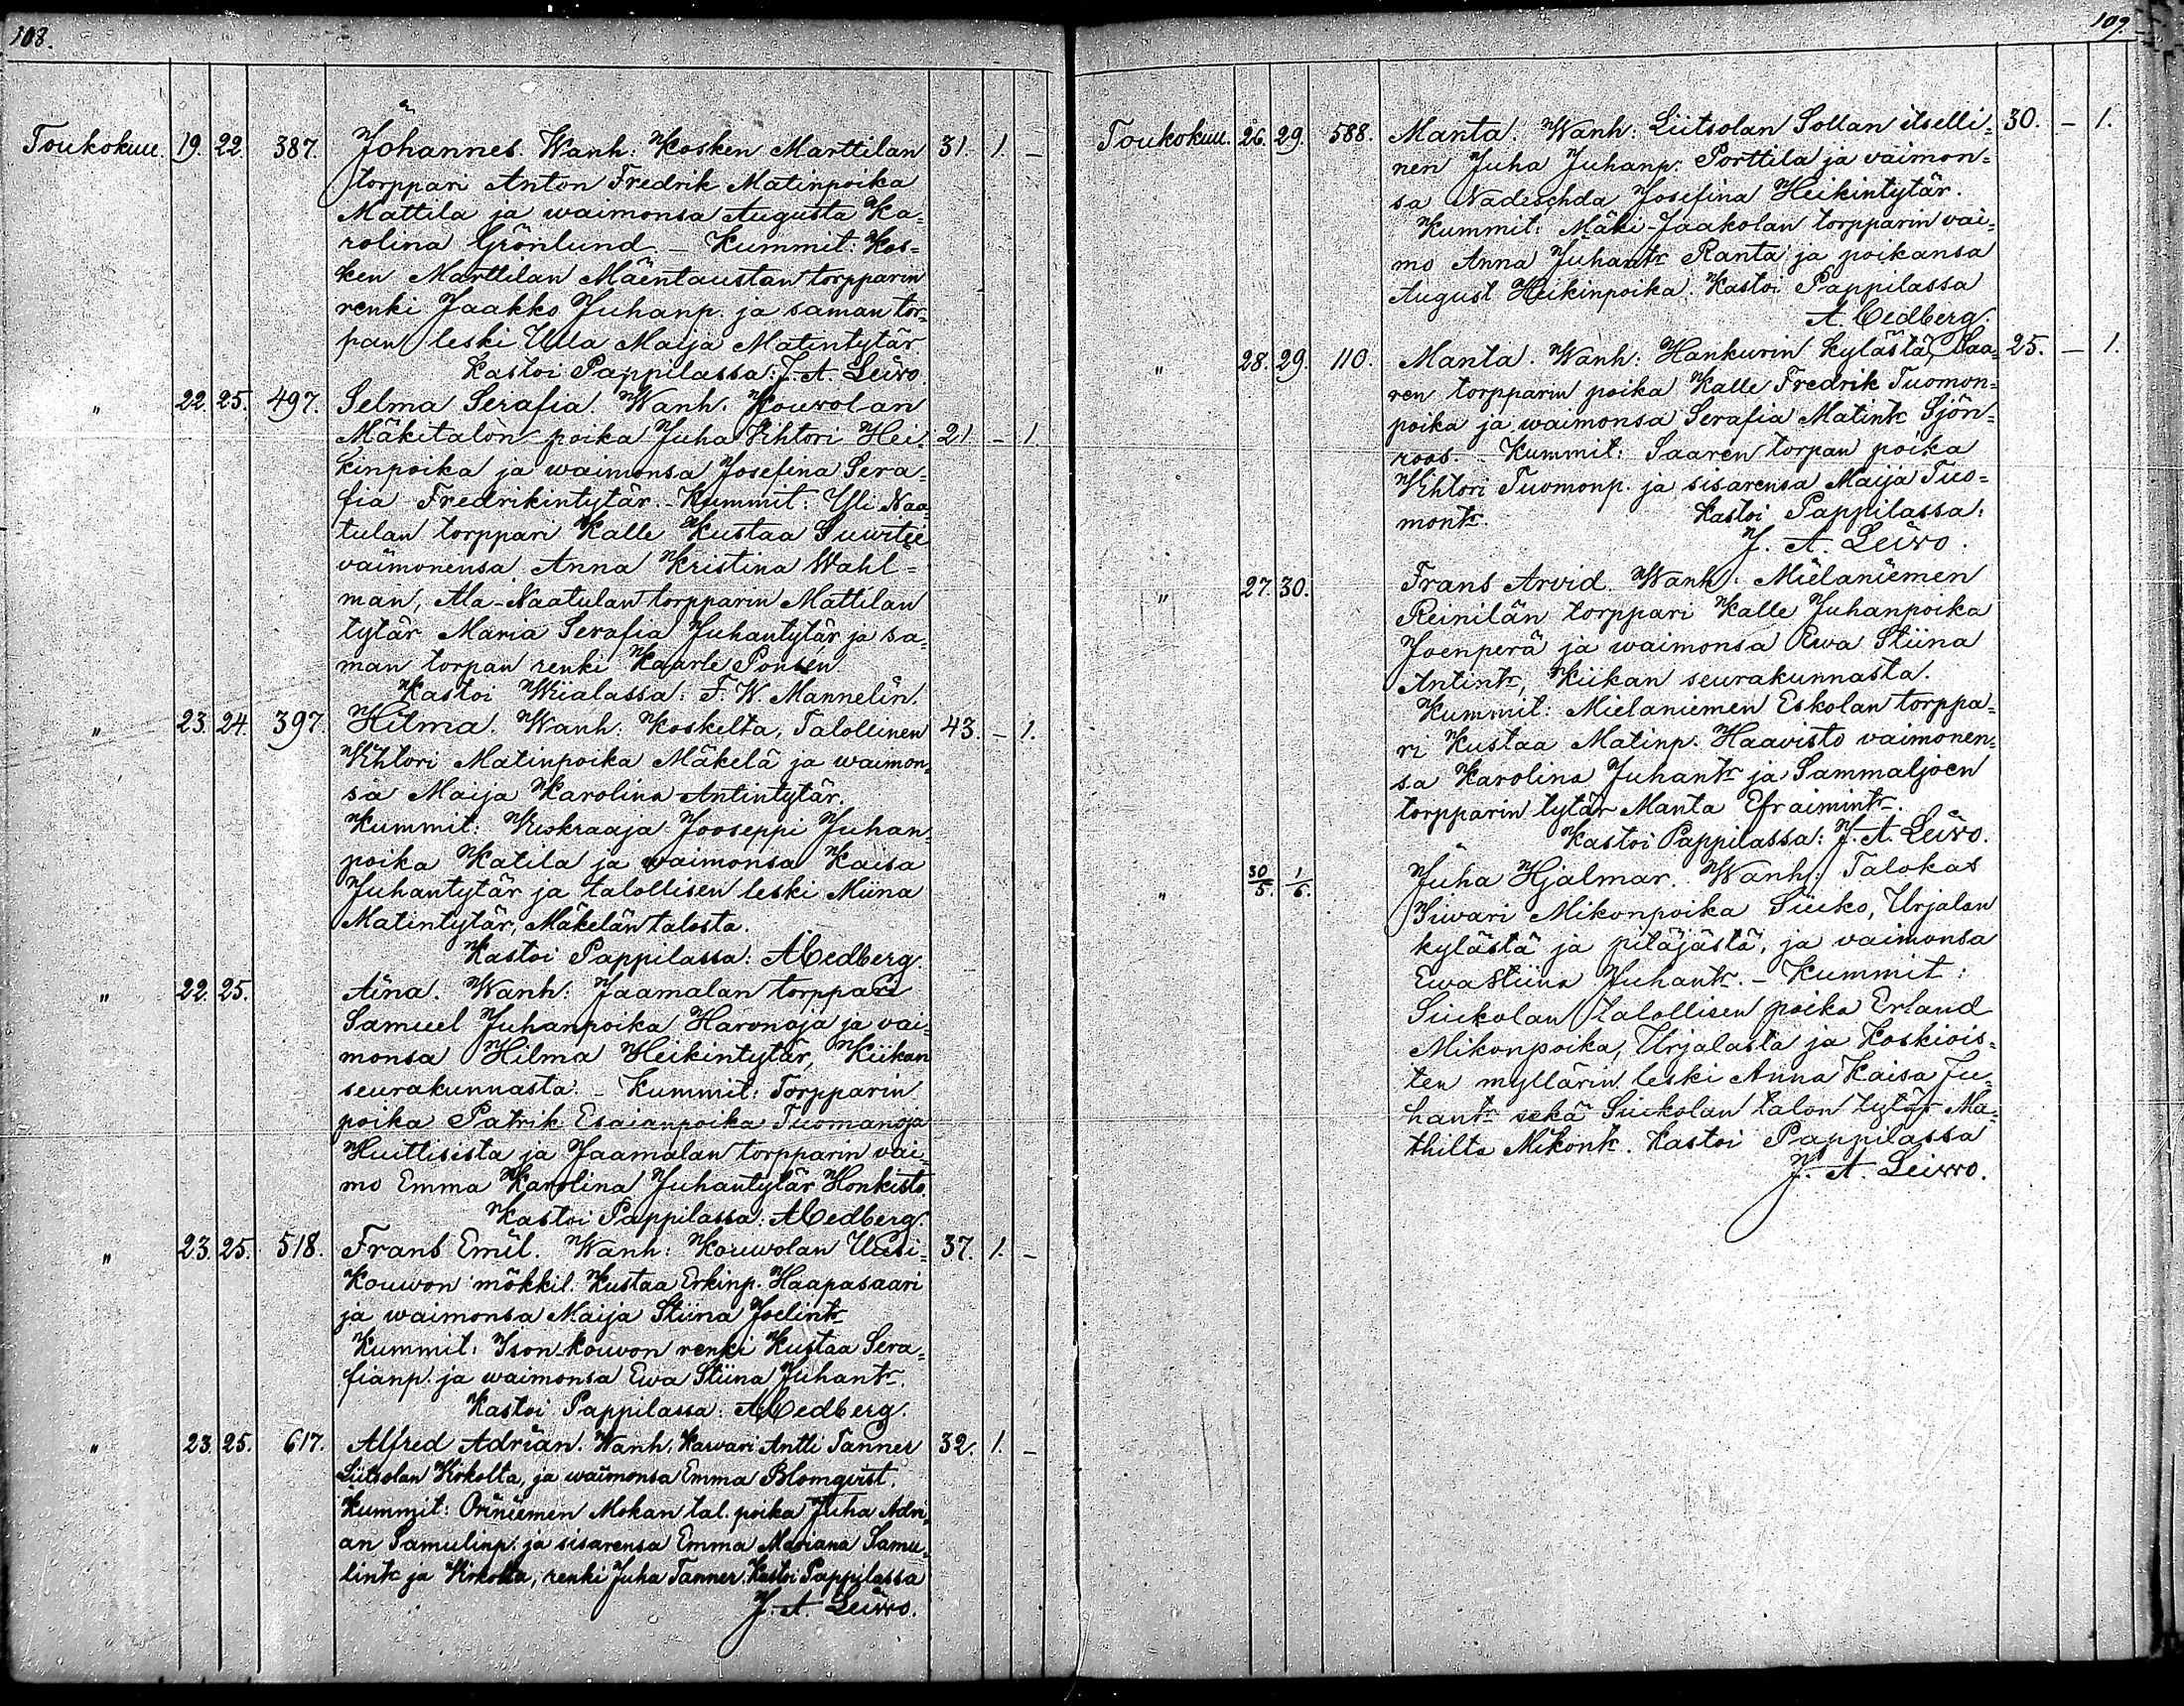 108.
Toukokuu. 19. 22. 387. Johannes. Wanh: Kosken Marttilan 31. 1. -
torppari Anton Fredrik Matinpoika
Mattila ja waimonsa Augusta Ka=
rolina Grönlund - Kummit: Kos=
ken Marttilan Mäentaustan torpparin
renki Jaakko Juhanp. ja saman tor=
pan leski Ulla Maija Matintytär
Kastoi Pappilassa: J. A. Leiwo.
" 22. 25. 497. Selma Serafia. Wanh. Kouwolan
Mäkitalon poika Juha Vihtori Hei= 21 - 1.
kinpoika ja waimonsa Josefina Sera=
fia Fredrikintytär. - Kummit: Yli Naa=
tulan torppari Kalle Kustaa Suwitie
vaimonensa Anna Kristina Wahl=
man, Ala-Naatulan torpparin Mattilan
tytär Maria Serafia Juhantytär ja sa=
man torpan renki Kaarle Ponsén.
Kastoi Wiialassa: F. W. Mannelin.
" 23. 24. 397. Hilma. Wanh: Koskelta, Talollinen 43. - 1.
Vihtori Matinpoika Mäkelä ja waimon=
sa Maija Karolina Antintytär.
Kummit: Ruskraaja Jooseppi Juhan=
poika Katila ja waimonsa Kaisa
Juhantytär ja talollisen leski Miina
Matintytär, Mäkelän talosta.
Kastoi Pappilassa: A Cedberg.
" 22. 25. Aina. Wanh: Jaamalan torppari
Samuel Juhanpoika Haronoja ja vai=
monsa Hilma Heikintytär, Kiikan
seurakunnasta. - Kummit: Torpparin
poika Patrik Esaianpoika Tuomanoja
Huittisista ja Jaamalan torpparin vai=
mo Emma Karolina Juhantytär Honkisto.
Kastoi Pappilassa: A Cedberg.
" 23. 25. 518. Frans Emil. Wanh: Kouwolan Uusi= 37. 1. -
Kouwon mökkil. Kustaa Erkinp. Haapasaari
ja waimonsa Maija Stiina Joelintr
Kummit: Ison-kouvon renki Kustaa Sera=
fianp. ja waimonsa Ewa Stiina Juhantr.
Kastoi Pappilassa: A Cedberg.
" 23. 25. 617. Alfred Adrian. Wanh. Karvari Antti Tanner 32. 1. -
Liitsolan Kirkolta, ja waimonsa Emma Blomqvist.
Kummit: Oriniemen Mokan tal. poika Juha Adri=
an Samulinp. ja sisarensa Emma Mariana Samu=
lintr ja Kirkolta, renki Juha Tanner. Kastoi Pappilassa
J. A. Leiwo.
109.
Toukokuu. 26. 29. 588. Manta. Wanh: Liitsolan Sollan itselli= 30. - 1.
nen Juha Juhanp. Porttila ja vaimon=
sa Nadeschda Josefina Heikintytär.
Kummit: Mäki-Jaakolan torpparin vai=
mo Anna Juhantr Ranta ja poikansa
August Heikinpoika. Kastoi Pappilassa
A. Cedberg.
" 28. 29. 110. Manta. Wanh: Hankurin kylästä, Saa= 25. - 1.
ren torpparin poika Kalle Fredrik Tuomon=
poika ja waimonsa Serafia Matintr Sjön=
roos - Kummit: Saaren torpan poika
Vihtori Tuomonp. ja sisarensa Maija Tuo=
montr. Kastoi Pappilassa:
J. A. Leiwo.
" 27. 30. Frans Arvid. Wanh: Mielaniemen
Reinilän torppari Kalle Juhanpoika
Joenperä ja waimonsa Ewa Stiina
Antintr, Kiikan seurakunnasta.
Kummit: Mielaniemen Eskolan torppa=
ri Kustaa Matinp. Haavisto vaimonen=
sa Karolina Juhantr ja Sammaljoen
torpparin tytär Manta Efraimintr.
Kastoi Pappilassa: J. A. Leiwo.
" 30/5. 1/6. Juha Hjalmar. Wanh: Talokas
Siwari Mikonpoika Siiko, Urjalan
kylästä ja pitäjästä, ja vaimonsa
Ewa Stiina Juhantr. - Kummit:
Siukolan talollisen poika Erland
Mikonpoika, Urjalasta ja Koskiois=
ten myllärin leski Anna Kaisa Ju=
hantr sekä Siukolan talon tytär Ma=
thilta Mikontr. Kastoi Pappilassa
J. A. Leiwo.